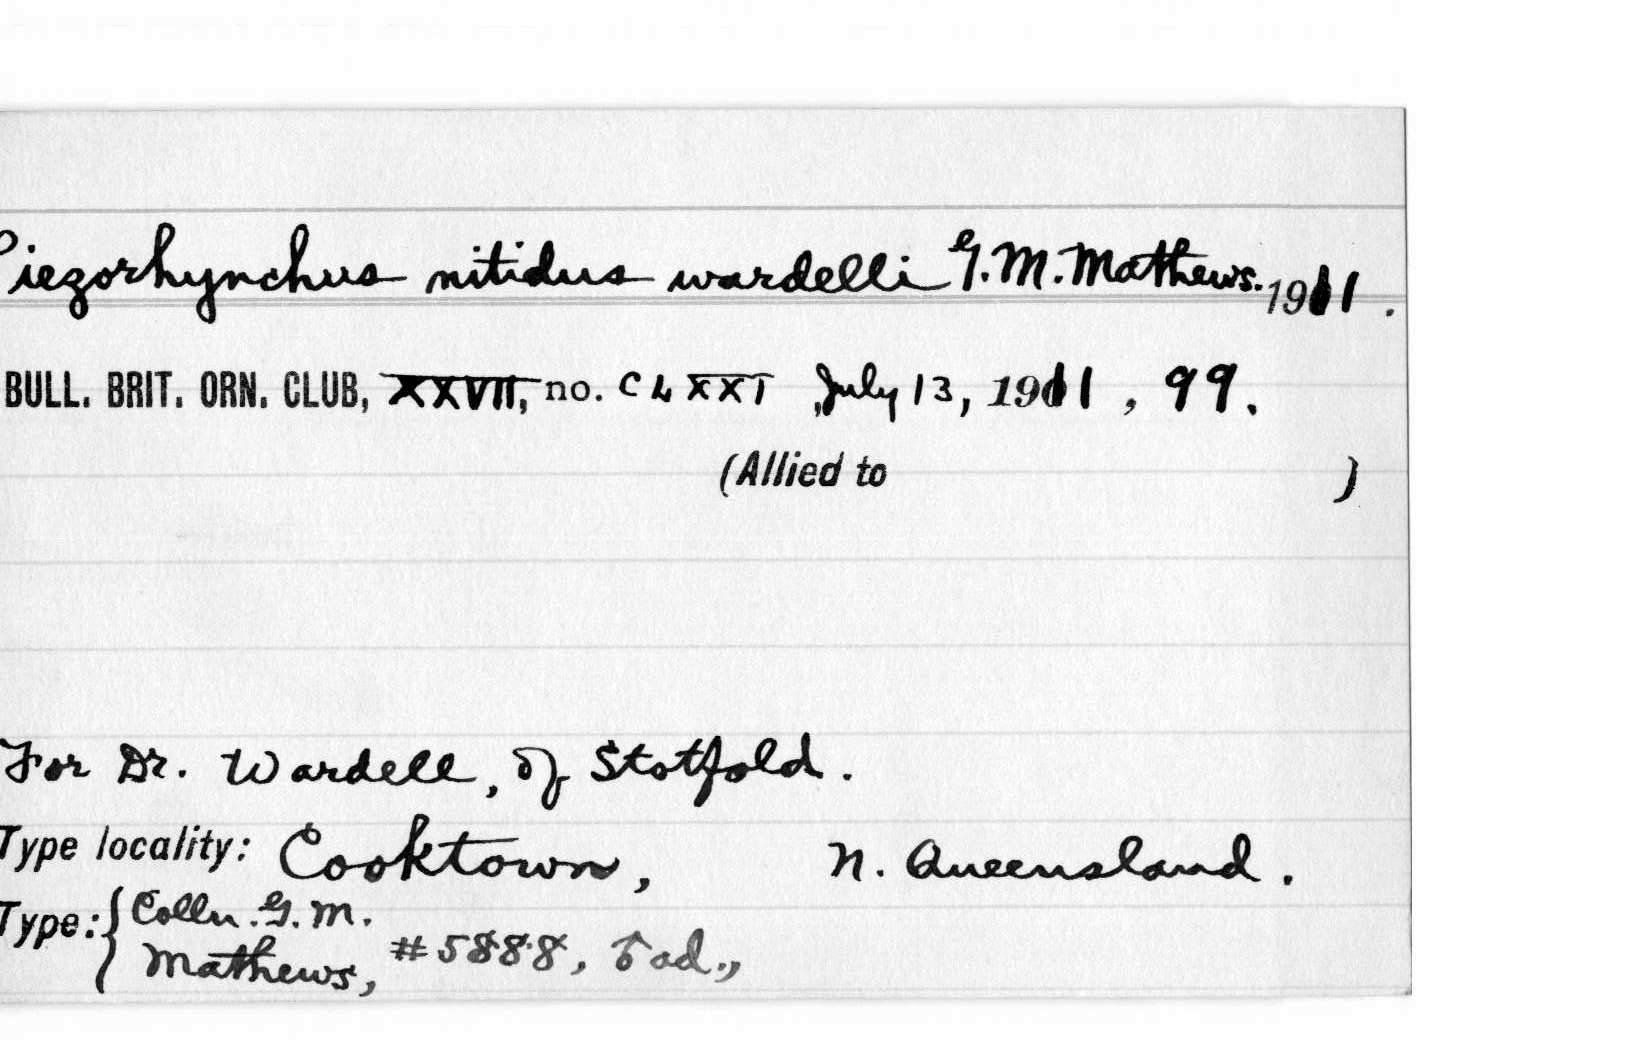 Piezorhynchus nitidus wardelli G.M.Mathews. 1911.
BULL. BRIT. ORN. CLUB, XXVII, no. CLXXI, July 13, 1911, 99.
(Allied to )
For Dr. Wardell, of Stotfold.
Type locality: Cooktown, N. Queensland.
Type: Colln. G. M.
Mathews, #5888, ♂ ad.,